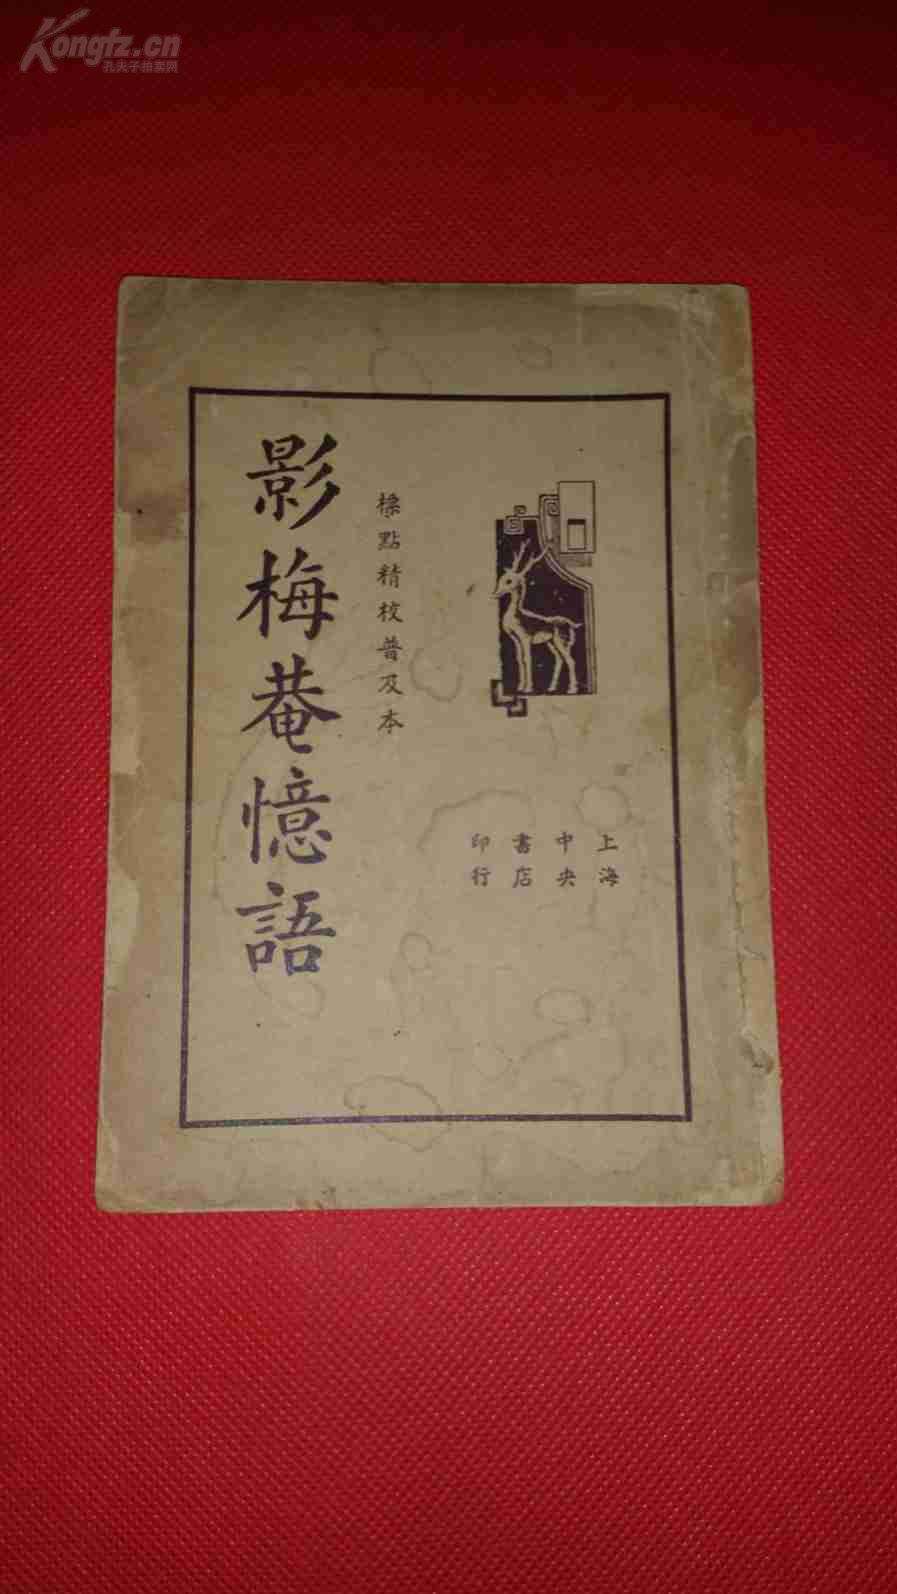 Kongfz.cn
孔夫子拍卖网
影梅菴憶語
標點精校普及本
上海
中央
書店
印行